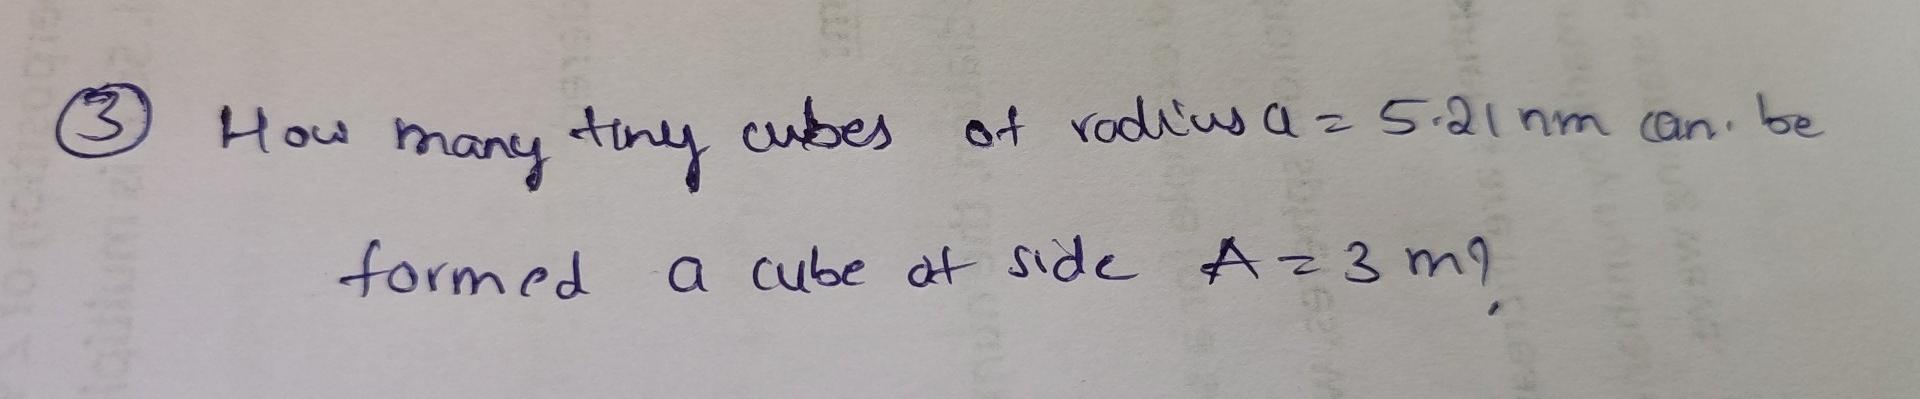 ③ How many tiny cubes of radius a = 5.21 nm can be
formed a cube of side A = 3 m?